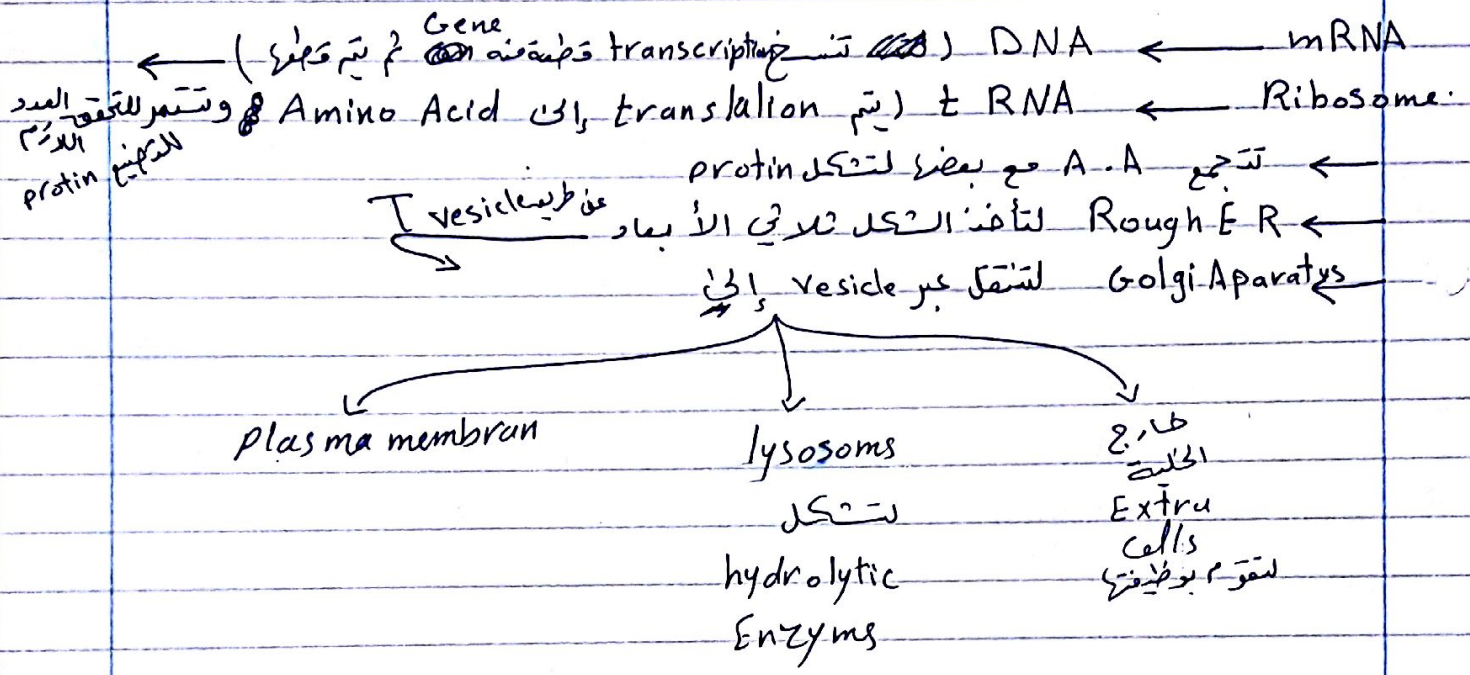 mRNA ← DNA ( تنسخ transcription قطعة منه Gene ثم يتم قطعها ) ←
Ribosome ← t RNA ( يتم translation إلى Amino Acid وتستمر للتحقق العدد اللازم للتصنيع protin
← تتجمع A.A مع بعضها لتشكل protin
← Rough E R لتأخذ الشكل ثلاثي الأبعاد عن طريق T vesicle
← Golgi Aparatys لتنتقل عبر vesicle إلى
Plasma membran
lysosoms
لتشكل
hydrolytic
Enzyms
خارج
الخلية
Extra
Cells
لتقوم بوظيفتها